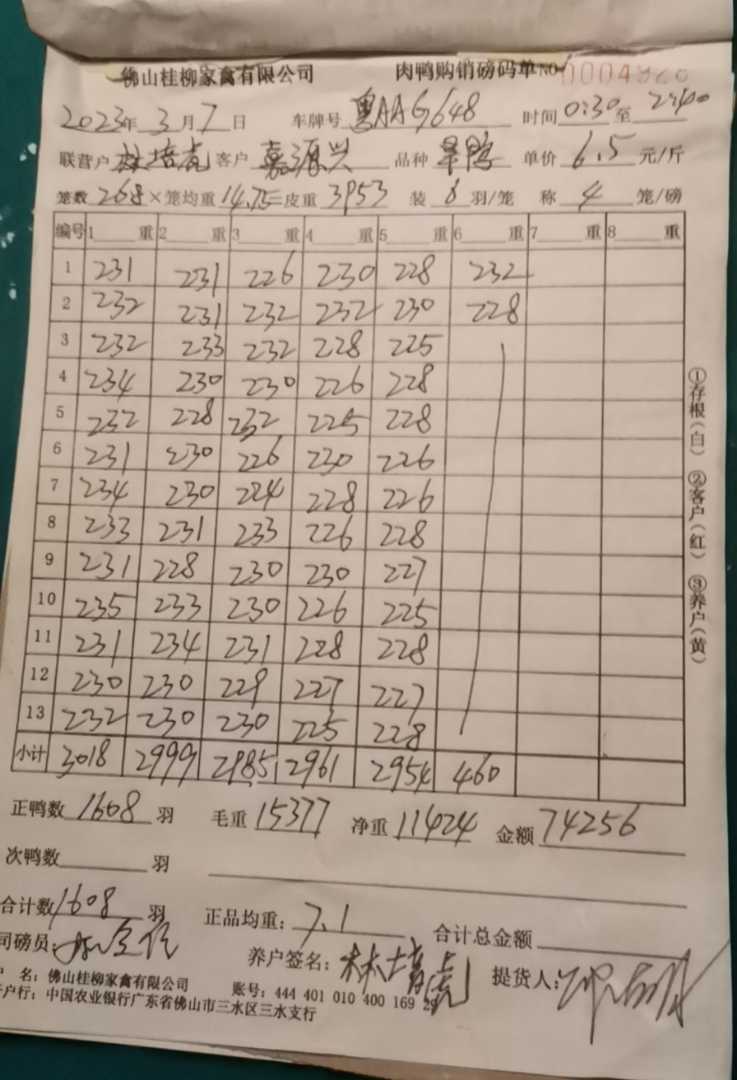 佛山桂柳家禽有限公司 肉鸭购销磅码单 NO 0004920
2023年 3月7日 车牌号 粤AAG648 时间 0:30至 2:40
联营户 林培虎 客户 嘉源兴 品种 单价 6.5 元/斤
笼数 268×笼均重 14.75=皮重 3953 装 6 羽/笼 称 4 笼/磅
编号 1 重 2 重 3 重 4 重 5 重 6 重 7 重 8 重
1 231 231 226 230 228 232
2 232 231 232 232 230 228
3 232 233 232 228 225
4 234 230 230 226 228
5 232 228 232 225 228
6 231 230 226 230 226
7 234 230 224 228 226
8 233 231 233 226 228
9 231 228 230 230 227
10 235 233 230 226 225
11 231 234 231 228 228
12 230 230 229 227 227
13 232 230 230 225 228
小计 3018 2999 2985 2961 2954 460
正鸭数 1608 羽 毛重 15377 净重 11424 金额 74256
次鸭数 羽
合计数 1608 羽 正品均重: 7.1 合计总金额
司磅员: 养户签名: 林培虎 提货人:
户 名: 佛山桂柳家禽有限公司 账号: 444 401 010 400 169 2
开户行: 中国农业银行广东省佛山市三水区三水支行
①存根(白) ②客户(红) ③养户(黄)